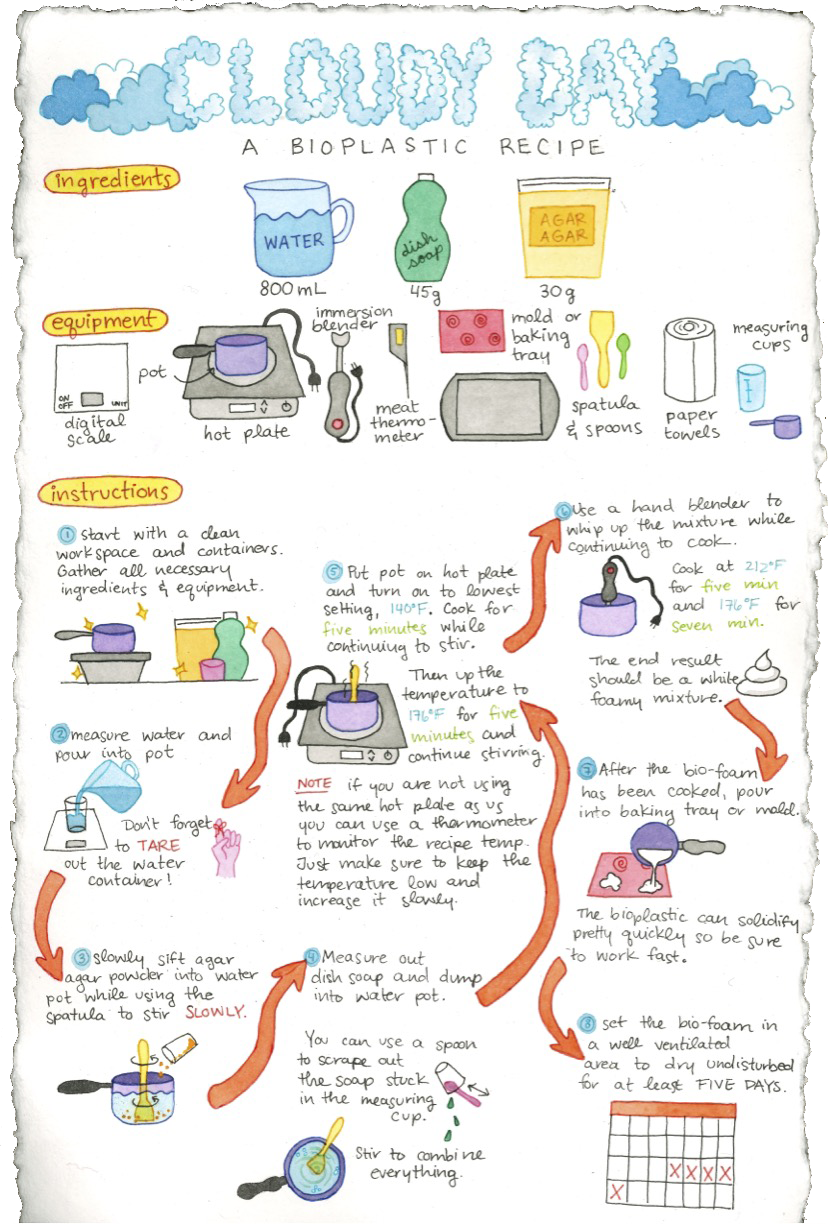 CLOUDY DAY
A BIOPLASTIC RECIPE
ingredients
WATER
800mL
dish
soap
45g
AGAR
AGAR
30g
equipment
ON
OFF
UNIT
digital
scale
pot
hot plate
immersion
blender
meat
thermo-
meter
mold or
baking
tray
spatula
& spoons
paper
towels
measuring
cups
instructions
1 Start with a clean
workspace and containers.
Gather all necessary
ingredients & equipment.
2 measure water and
pour into pot
Don't forget
to TARE
out the water
container!
3 Slowly sift agar
agar powder into water
pot while using the
spatula to stir SLOWLY.
4 Measure out
dish soap and dump
into water pot.
You can use a spoon
to scrape out
the soap stuck
in the measuring
cup.
Stir to combine
everything.
5 Put pot on hot plate
and turn on to lowest
setting, 140°F. Cook for
five minutes while
continuing to stir.
Then up the
temperature to
176°F for five
minutes and
continue stirring.
NOTE if you are not using
the same hot plate as us
you can use a thermometer
to monitor the recipe temp.
Just make sure to keep the
temperature low and
increase it slowly.
6 Use a hand blender to
whip up the mixture while
continuing to cook.
Cook at 212°F
for five min
and 176°F for
seven min.
The end result
should be a white
foamy mixture.
7 After the bio-foam
has been cooked, pour
into baking tray or mold.
The bioplastic can solidify
pretty quickly so be sure
to work fast.
8 set the bio-foam in
a well ventilated
area to dry undisturbed
for at least FIVE DAYS.
X X X X
X